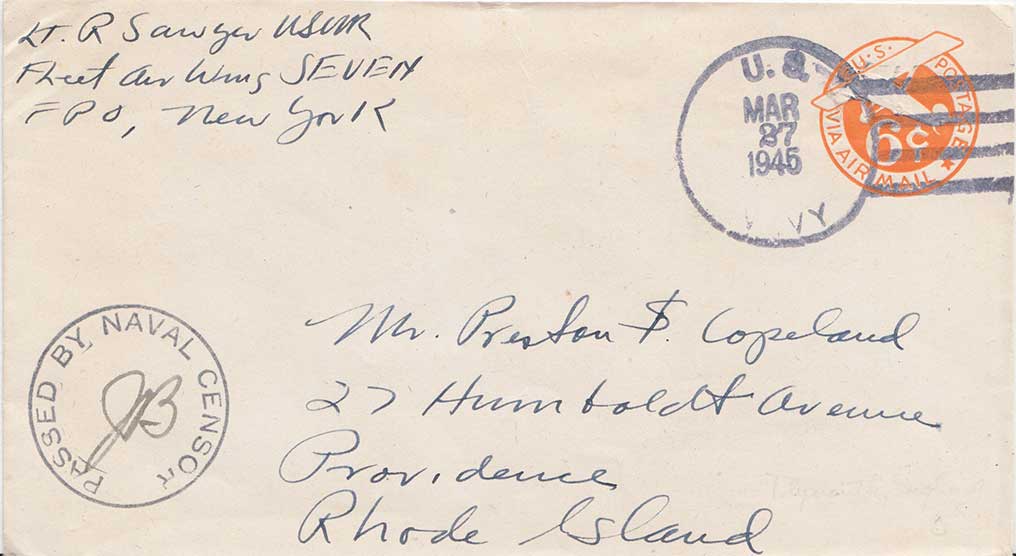 Lt. R Sawyer USNR
Fleet Air Wing SEVEN
FPO, New York
U.S.
MAR
27
1945
NAVY
U.S. POSTAGE
6c
VIA AIR MAIL
PASSED BY NAVAL CENSOR
JB
Mr. Preston F. Copeland
27 Humboldt Avenue
Providence
Rhode Island